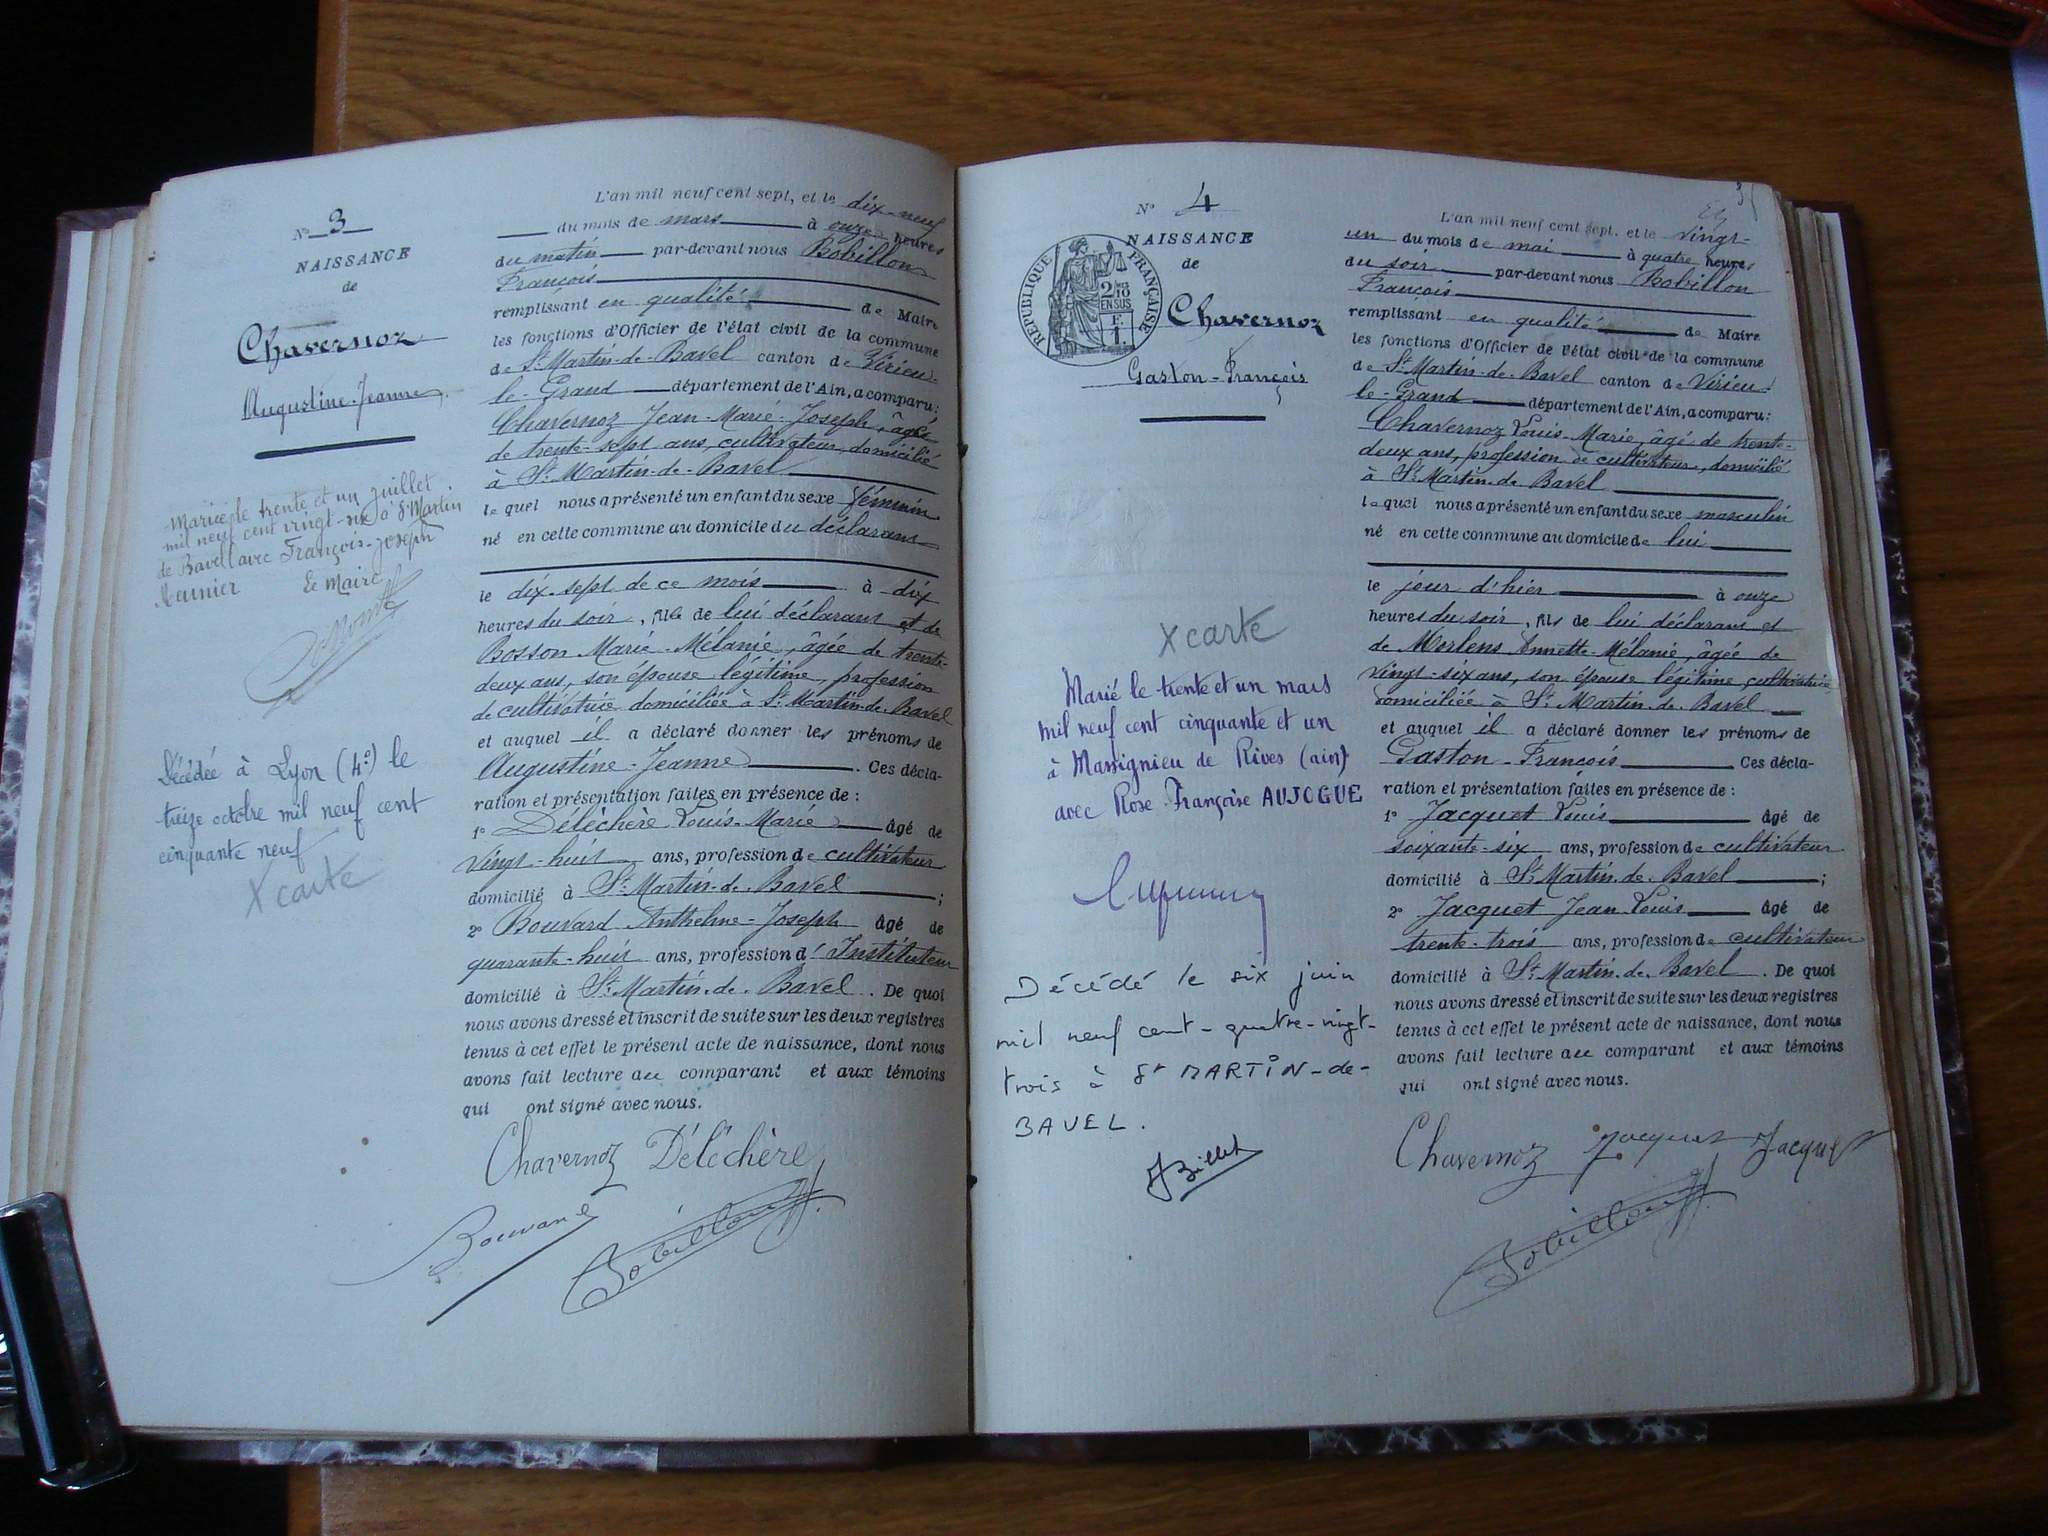 N° 3
NAISSANCE
de
Chavernoz
Augustine-Jeanne
Mariée le trente et un juillet
mil neuf cent vingt-six à St Martin
de Bavel avec François-Joseph
Meunier Le Maire
Décédée à Lyon (4e) le
treize octobre mil neuf cent
cinquante neuf
X carte
L'an mil neuf cent sept, et le dix-neuf
du mois de mars à onze heures
du matin par-devant nous Bobillon
François
remplissant en qualité de Maire
les fonctions d'Officier de l'état civil de la commune
de St Martin-de-Bavel canton de Virieu-
le-Grand département de l'Ain, a comparu:
Chavernoz Jean-Marie-Joseph, âgé
de trente-sept ans, cultivateur, domicilié
à St Martin-de-Bavel
lequel nous a présenté un enfant du sexe féminin
né en cette commune au domicile du déclarant
le dix-sept de ce mois à dix
heures du soir, fille de lui déclarant et de
Bosson Marie-Mélanie, âgée de trente-
deux ans, son épouse légitime, profession
de cultivatrice domiciliée à St Martin-de-Bavel
et auquel il a déclaré donner les prénoms de
Augustine-Jeanne. Ces décla-
ration et présentation faites en présence de :
1° Déléchère Louis-Marie âgé de
vingt-huit ans, profession de cultivateur
domicilié à St Martin-de-Bavel ;
2° Bouvard Anthelme-Joseph âgé de
quarante-huit ans, profession d'Instituteur
domicilié à St Martin-de-Bavel. De quoi
nous avons dressé et inscrit de suite sur les deux registres
tenus à cet effet le présent acte de naissance, dont nous
avons fait lecture au comparant et aux témoins
qui ont signé avec nous.
Chavernoz Déléchère
Bouvard Bobillon
N° 4
NAISSANCE
de
RÉPUBLIQUE FRANÇAISE
2/10 EN SUS
F. 1.
Chavernoz
Gaston-François
X carte
Marié le trente et un mars
mil neuf cent cinquante et un
à Massignieu de Rives (ain)
avec Rose-Françoise AUJOGUE
Décédé le six juin
mil neuf cent-quatre-vingt-
trois à St MARTIN-de-
BAVEL.
Billet
L'an mil neuf cent sept, et le vingt-
un du mois de mai à quatre heures
du soir par-devant nous Bobillon
François
remplissant en qualité de Maire
les fonctions d'Officier de l'état civil de la commune
de St Martin-de-Bavel canton de Virieu-
le-Grand département de l'Ain, a comparu:
Chavernoz Louis-Marie, âgé de trente-
deux ans, profession de cultivateur, domicilié
à St Martin-de-Bavel
lequel nous a présenté un enfant du sexe masculin
né en cette commune au domicile de lui
le jour d'hier à onze
heures du soir, fils de lui déclarant et
de Merlens Annette-Mélanie, âgée de
vingt-six ans, son épouse légitime, cultivatrice
domiciliée à St Martin-de-Bavel
et auquel il a déclaré donner les prénoms de
Gaston-François Ces décla-
ration et présentation faites en présence de :
1° Jacquet Louis âgé de
soixante-six ans, profession de cultivateur
domicilié à St Martin-de-Bavel ;
2° Jacquet Jean Louis âgé de
trente-trois ans, profession de cultivateur
domicilié à St Martin-de-Bavel. De quoi
nous avons dressé et inscrit de suite sur les deux registres
tenus à cet effet le présent acte de naissance, dont nous
avons fait lecture au comparant et aux témoins
qui ont signé avec nous.
Chavernoz Jacquet Jacquet
Bobillon